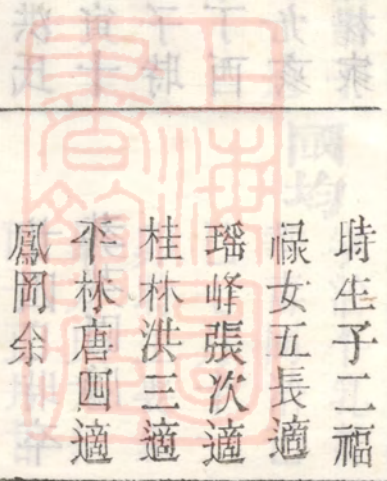 時生子二福
禄女五長適
瑶峰張次適
桂林洪三適
平林唐四適
鳳岡余